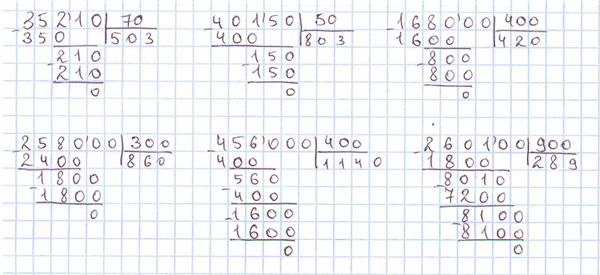 -352'10 | 70
350 | 503
-210
210
0
-401'50 | 50
400 | 803
-150
150
0
-1680'00 | 400
1600 | 420
-800
800
0
-2580'00 | 300
2400 | 860
-1800
1800
0
-456'000 | 400
400 | 1140
-560
400
-1600
1600
0
-2601'00 | 900
1800 | 289
-8010
7200
-8100
8100
0